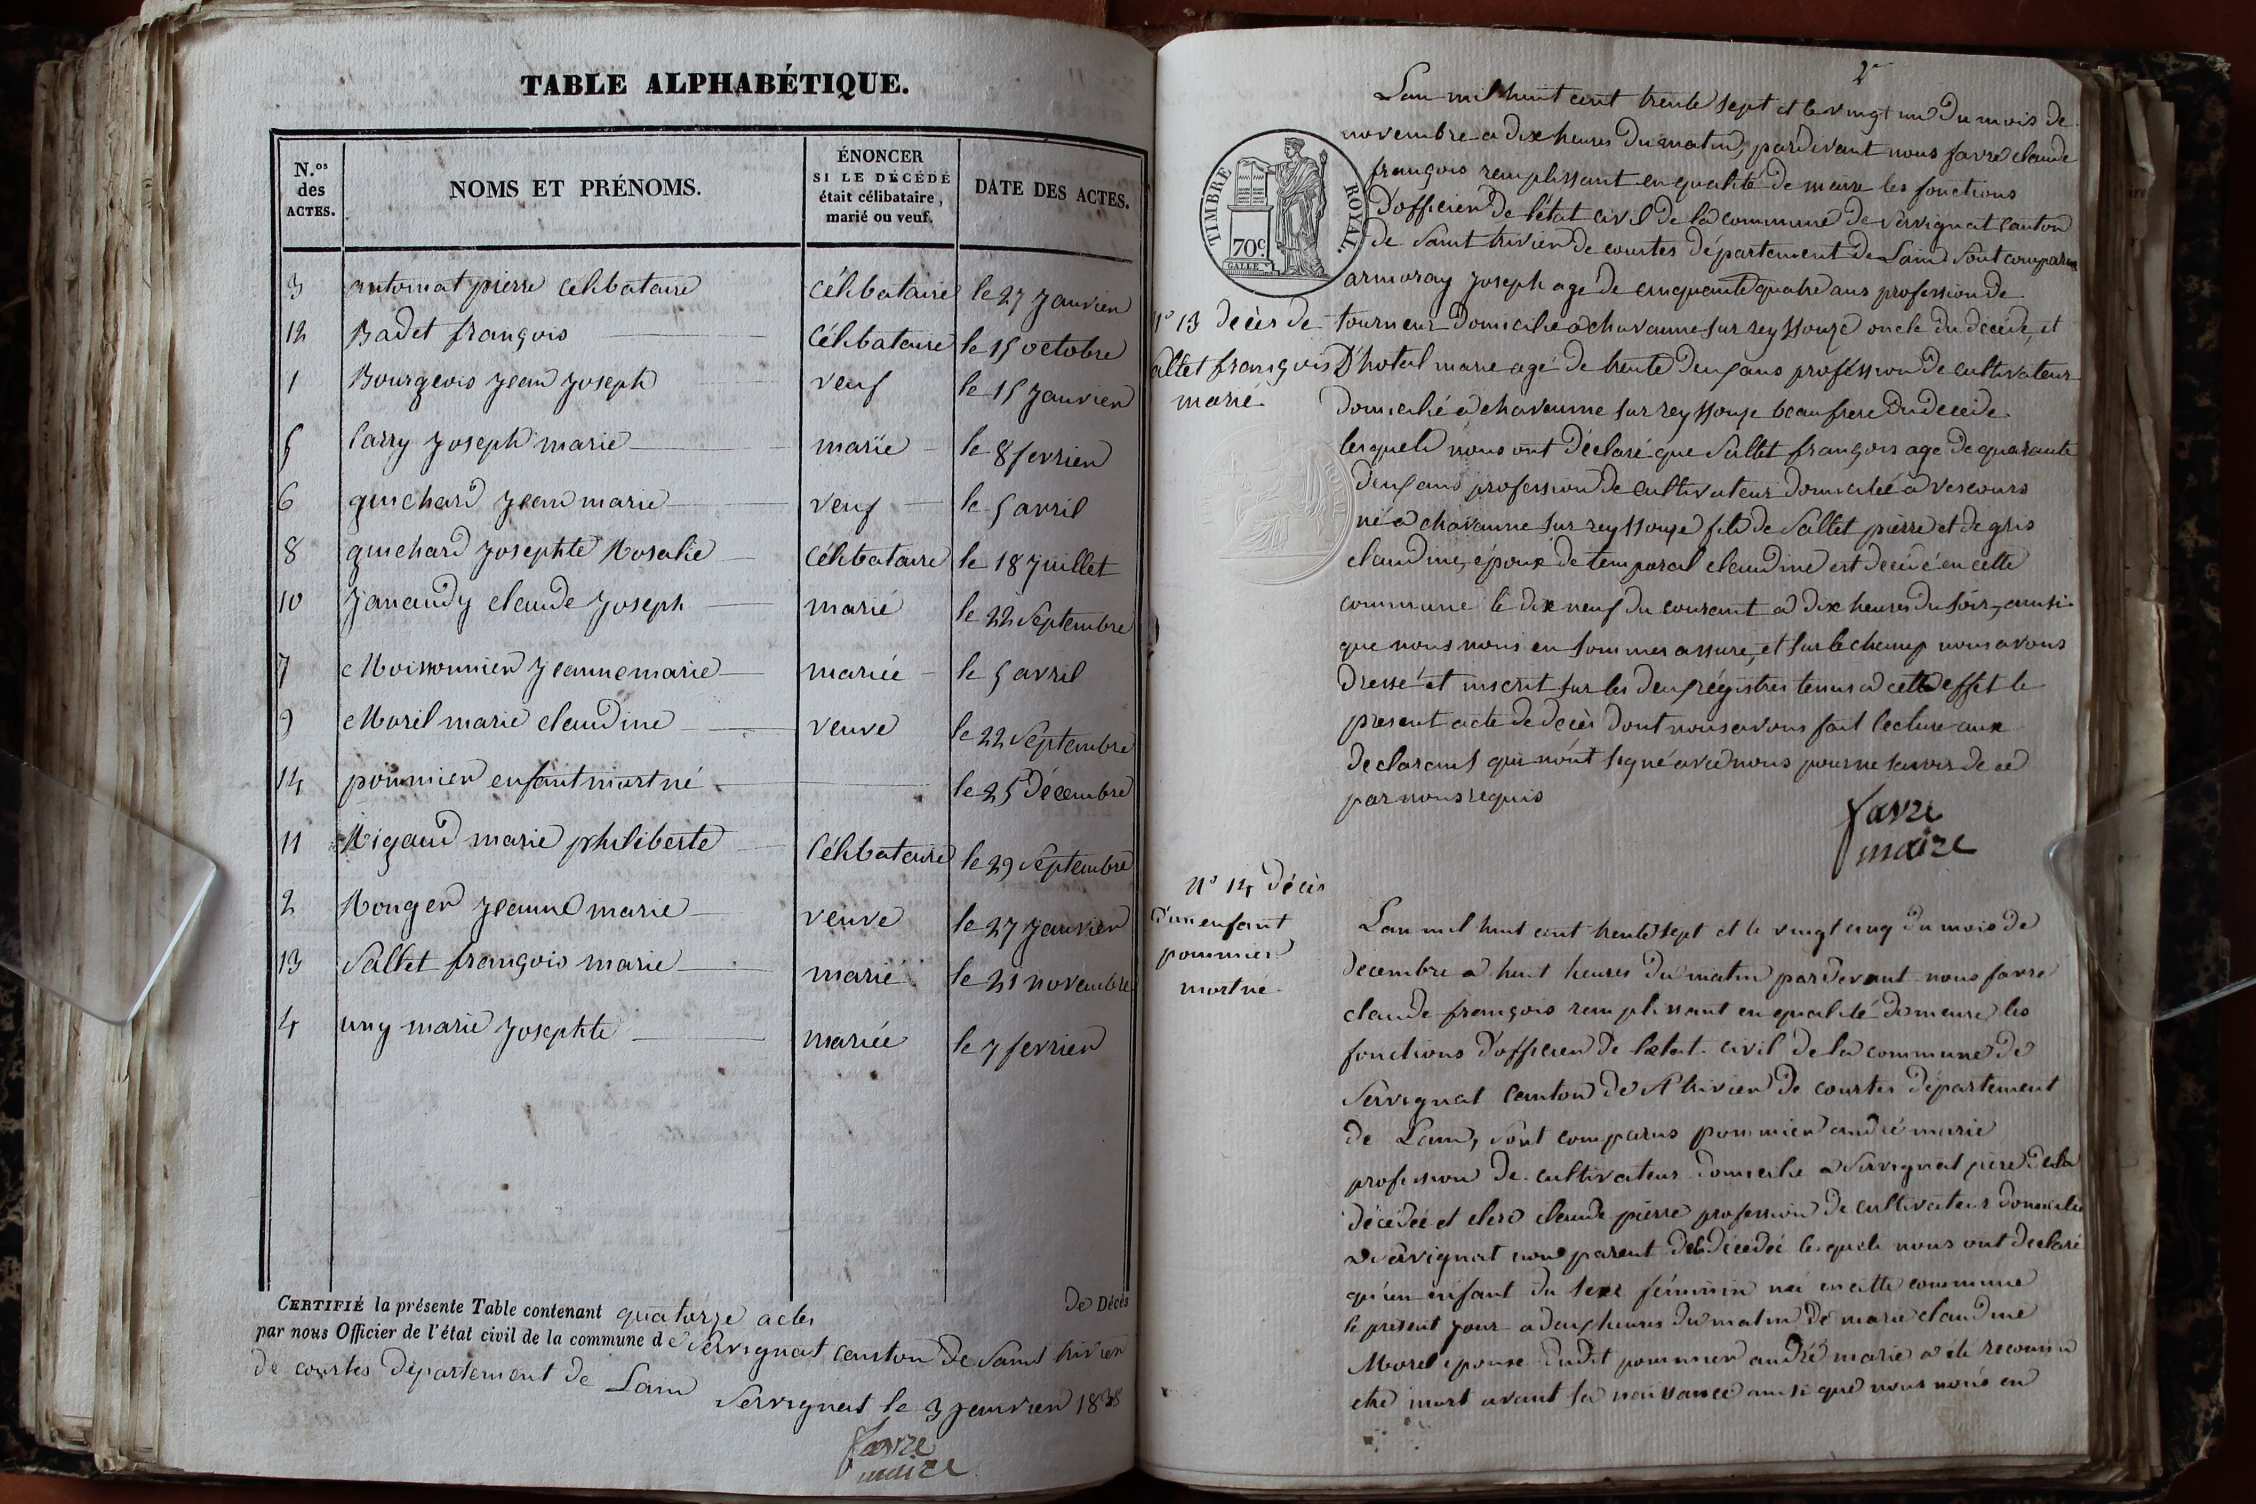 TABLE ALPHABÉTIQUE.
N.os des ACTES.
NOMS ET PRÉNOMS.
ÉNONCER SI LE DÉCÉDÉ était célibataire, marié ou veuf.
DATE DES ACTES.
3 antoinat pierre célibataire célibataire le 27 janvier
12 Badet françois célibataire le 15 octobre
1 Bourgeois jean joseph veuf le 15 janvier
5 Carry joseph marie marïe le 8 fevrier
6 guichard jean marie veuf le 5 avril
8 guichard josephte Rosalie célibataire le 18 juillet
10 janaudy claude joseph marié le 22 septembre
7 Moissonnier jeanne marie mariée le 5 avril
9 Morel marie claudine veuve le 22 septembre
14 pommier enfant mort né le 25 décembre
11 Rigaud marie philiberte célibataire le 29 septembre
2 Rouger jeanne marie veuve le 27 janvier
13 Sallet françois marie marié le 21 novembre
4 uny marie josephte mariée le 7 fevrier
CERTIFIÉ la présente Table contenant quatorze actes de Décès
par nous Officier de l'état civil de la commune de Servignat canton de Saint trivier
de courtes département de Lain
Servignat le 3 janvier 1838
favre
maire
2
Lan mil huit cent trente sept et le vingt un du mois de
novembre a dix heures du matin, pardevant nous favre claude
françois remplissant en qualité de maire les fonctions
d'officier de l'état civil de la commune de Servignat canton
de Saint trivier de courtes département de Lain Sont comparus
armoray joseph age de cinquante quatre ans profession de
tourneur domicilie a chavanne sur reyssouze oncle du décédé, et
D'hotal marie agé de trente deux ans proféssion de cultivateur
domicilié a chavanne sur reyssouze beaufrere du decede
lesquels nous ont déclaré que Sallet françois age de quarante
deux ans profession de cultivateur domicilié a vescours
né a chavanne sur reyssouze fils de Sallet pierre et de gris
claudine, époux de temporal claudine est decédé en cette
commune le dix neuf du courant a dix heures du soir, ainsi
que nous nous en sommes assuré, et sur le champ nous avons
dressé et inscrit sur les deux régistres tenus a cette effet le
present acte de decès dont nous avons fait lecture aux
declarants qui n'ont signé avec nous pour ne savoir de ce
par nous requis
favre
maire
TIMBRE ROYAL.
70c
N° 13 decès de
Sallet françois
marié
N° 14 décès
d'un enfant
pommier
mort né
Lan mil huit cent trente sept et le vingt cinq du mois de
décembre a huit heures du matin pardevant nous favre
claude françois remplissant en qualité de maire les
fonctions d'officier de l'etat civil de la commune de
Servignat canton de St trivier de courtes département
de Lain, sont comparus pommier andré marie
profession de cultivateur domicilie a Servignat père de la
décédée et clerc claude pierre profession de cultivateur domicilie
a Servignat non parent de la décedée lesquels nous ont declaré
qu'un enfant du sexe féminin né en cette commune
le présent jour a deux heures du matin de marie claudine
Morel epouse dudit pommier andré marie a été reconnu
etre mort avant sa naissance ainsi que nous nous en